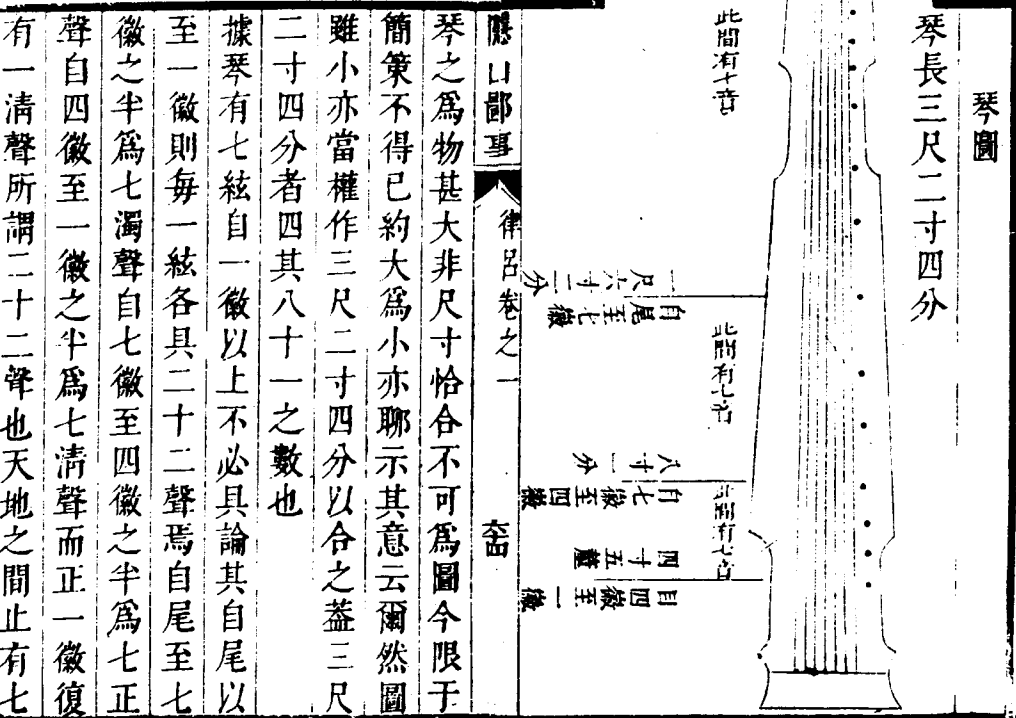 琴圖
琴長三尺二寸四分
此間有十音
一尺六寸二分
自尾至七徽
此間有七音
八寸一分
自七徽至四徽
此間有七音
四寸五釐
自四徽至一徽
律呂卷之一
琴之爲物甚大非尺寸恰合不可爲圖今限于
簡策不得已約大爲小亦聊示其意云爾然圖
雖小亦當權作三尺二寸四分以合之葢三尺
二寸四分者四其八十一之數也
據琴有七絃自一徽以上不必具論其自尾以
至一徽則每一絃各具二十二聲焉自尾至七
徽之半爲七濁聲自七徽至四徽之半爲七正
聲自四徽至一徽之半爲七清聲而正一徽復
有一清聲所謂二十二聲也天地之間止有七